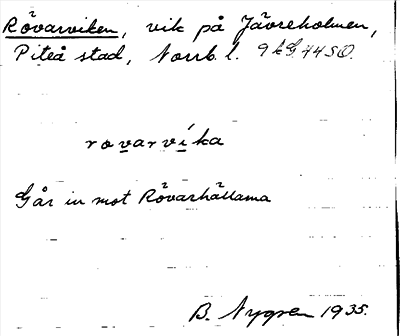 Rövarviken, vik på Jävreholmen,
Piteå stad, Norrb. l. 9 k G. 44 SO.
rovarvika
Går in mot Rövarhällarna
B. Nygren 1935.